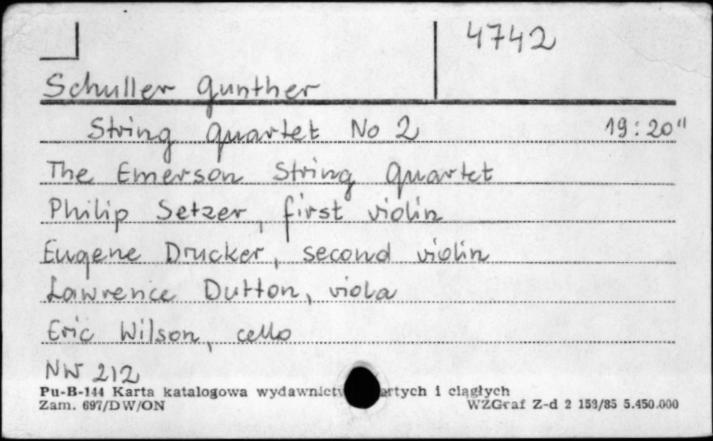 4742
Schuller Gunther
String Quartet No 2 19:20"
The Emerson String Quartet
Philip Setzer, first violin
Eugene Drucker, second violin
Lawrence Dutton, viola
Eric Wilson, cello
NW 212
Pu-B-144 Karta katalogowa wydawnictw artych i ciągłych
Zam. 697/DW/ON WZGraf Z-d 2 153/85 5.450.000